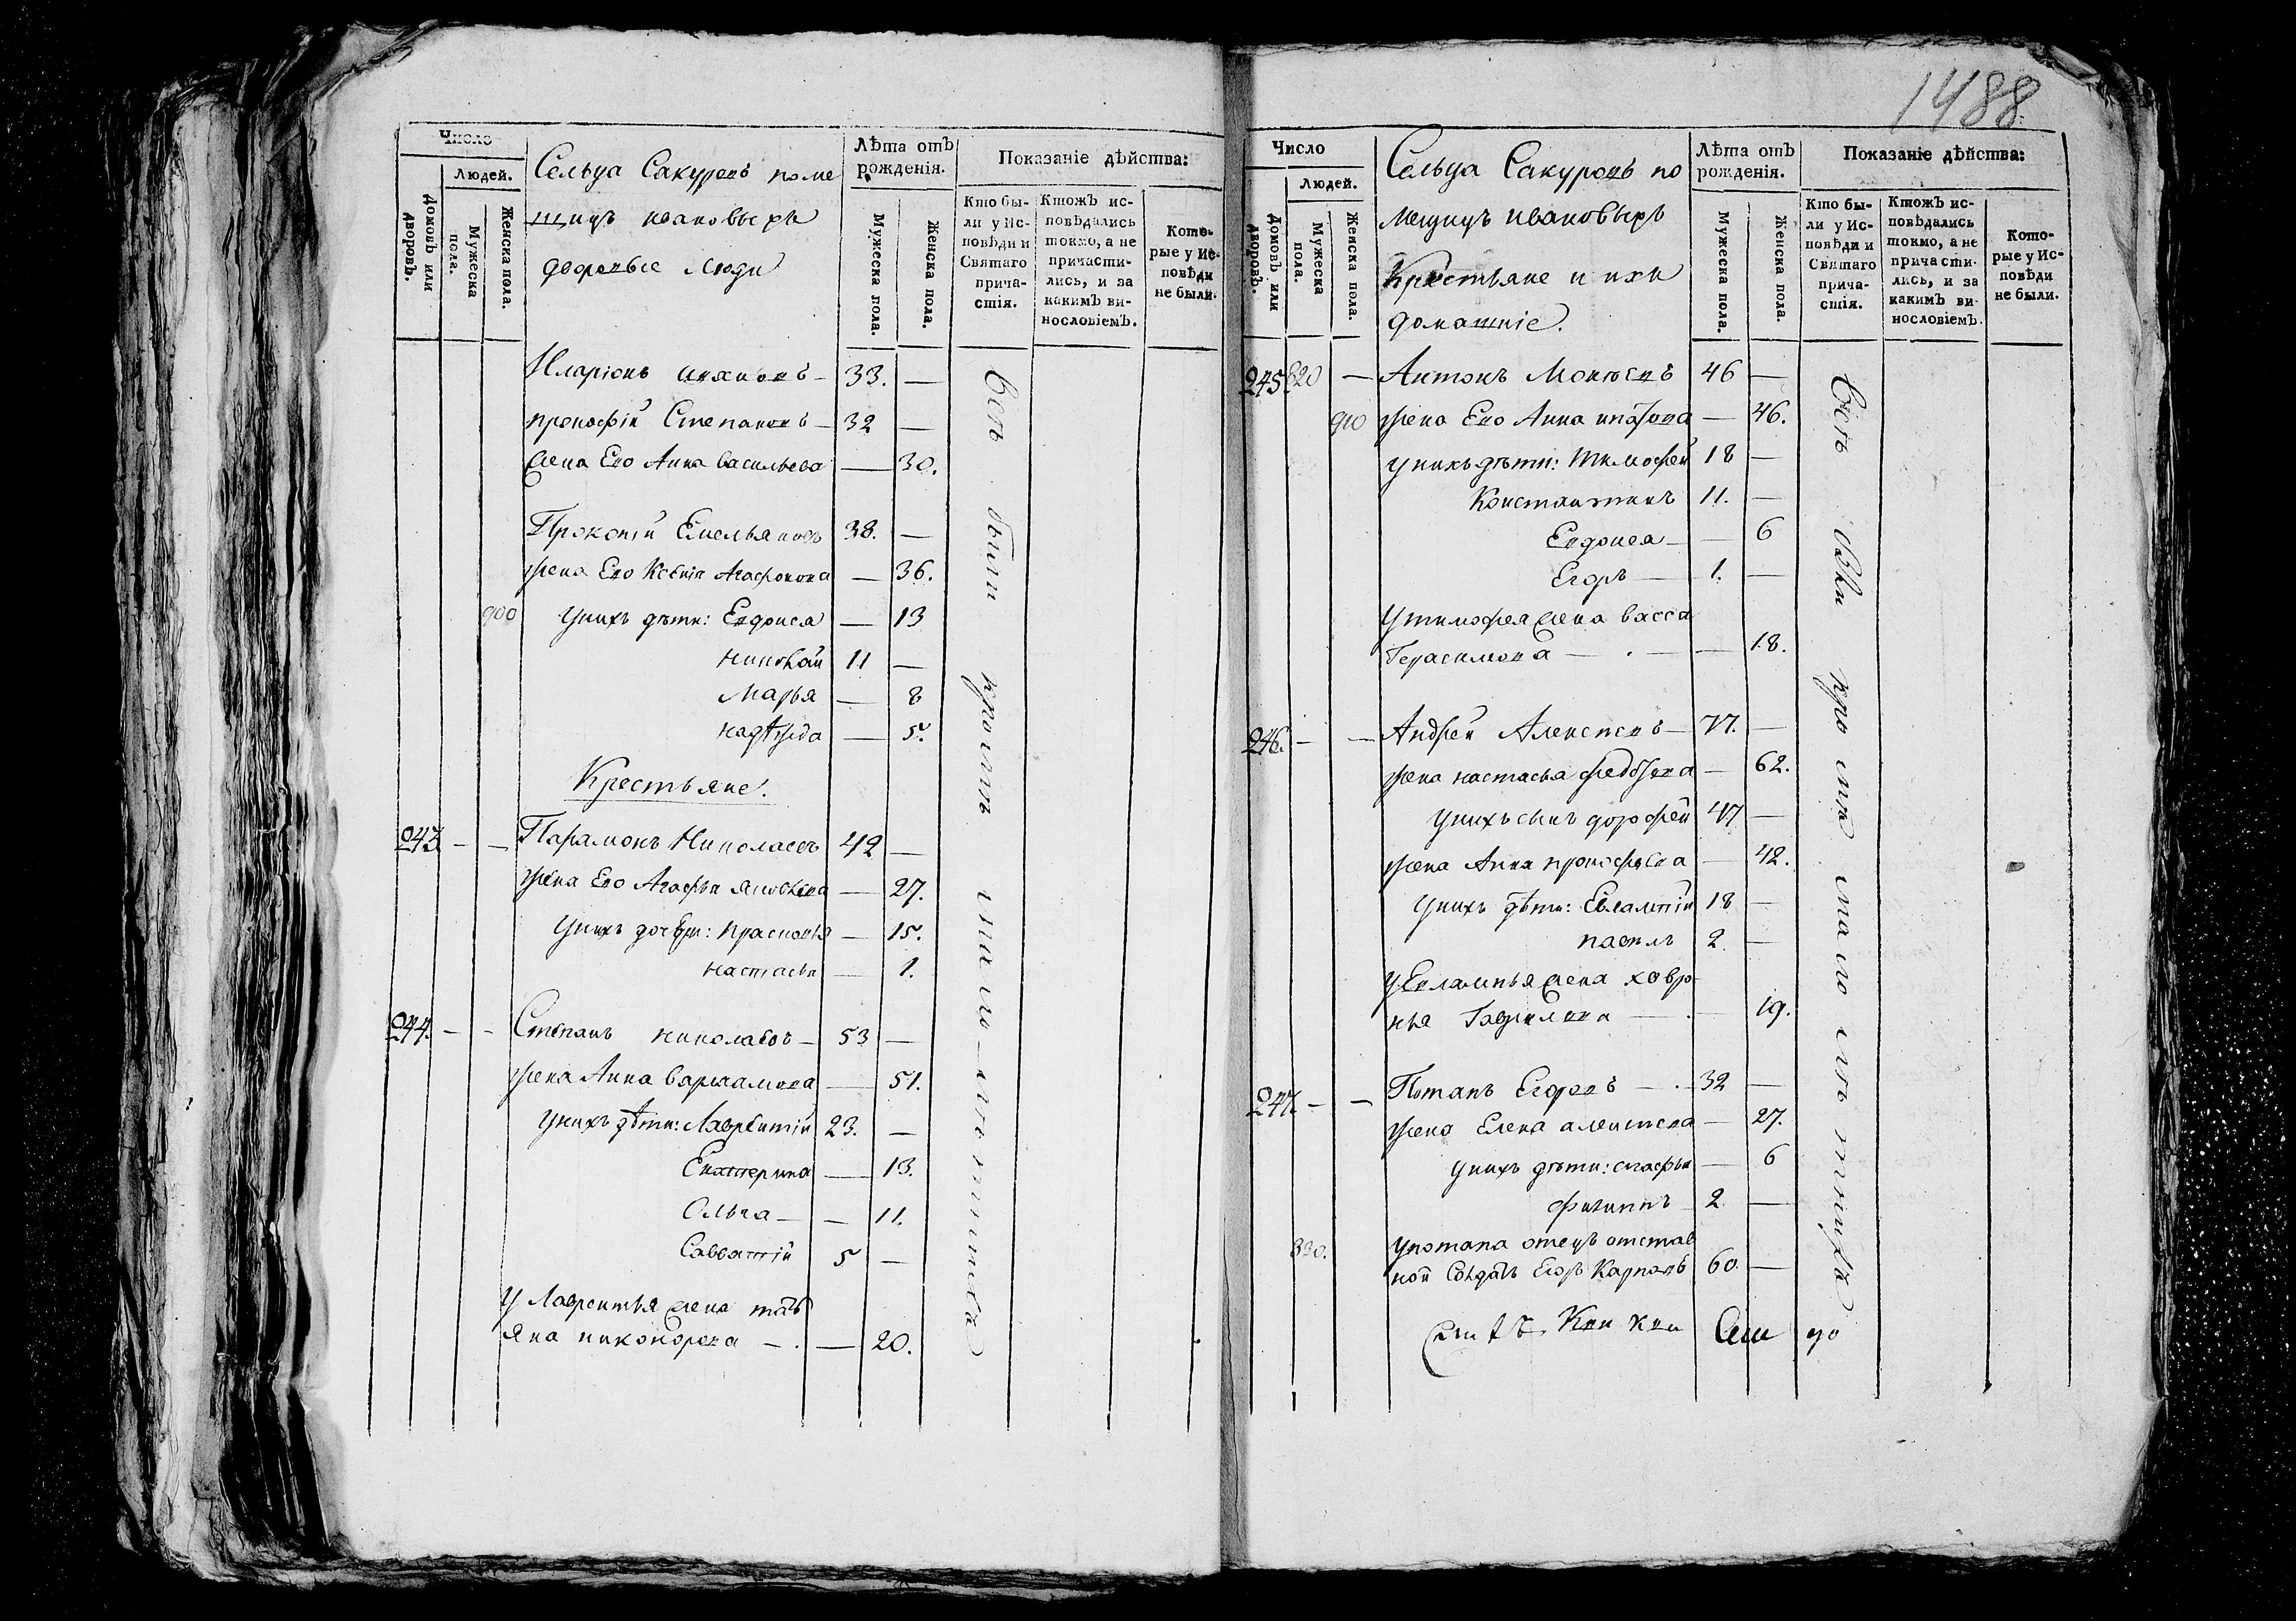 1488.
Число
Людей.
Домовъ или дворовъ.
Мужеска пола.
Женска пола.
Сельца Сакуровъ поме
щицъ ивановыхъ
дворовые люди
Лѣта отъ рожденія.
Мужеска пола.
Женска пола.
Показаніе дѣйства:
Кто бы-
ли у Ис-
повѣди и
Святаго
прича-
стія.
Ктожъ ис-
повѣдались
токмо, а не
причасти-
лись, и за
какимъ ви-
нословіемъ.
Кото-
рые у Ис-
повѣди
не были.
Иларіонъ — 33. —
прокофій Степановъ — 32 —
жена Ево Анна васильева — 30.
Прокопій Емельяновъ 38. —
жена Ево Ксенія Агафонова — 36.
900 Унихъ дѣти: Евдокея — 13
николай 11 —
Марья — 8
надежда — 5.
Крестьяне.
243 — — Парамонъ Николаевъ 42 —
жена Ево Агафья яковлева — 27.
Унихъ дочери: прасковья — 15.
настасья — 1.
244. — — Степанъ николаевъ — 53 —
жена Анна варламова — 51.
Унихъ дѣти: Лаврентій 23. —
Екатерина — 13.
Ольга — — 11.
Савватій 5 —
У Лаврентья жена тать
яна никонорова — . — 20.
Число
Людей.
Домовъ или дворовъ.
Мужеска пола.
Женска пола.
Сельца Сакуровъ по
мещицъ ивановыхъ
Крестьяне и ихъ
домашніе.
Лѣта отъ
рожденія.
Мужеска пола.
Женска пола.
Показаніе дѣйства:
Кто бы-
ли у Ис-
повѣди и
Святаго
прича-
стія.
Ктожъ ис-
повѣдались
токмо, а не
причасти-
лись, и за
какимъ ви-
нословіемъ.
Кото-
рые у Ис-
повѣди
не были.
245 820 — Антонъ Моисеевъ 46 —
910 жена Ево Анна — 46.
унихъ дѣти: Тимофей 18 —
Константинъ 11. —
Евдокея — — 6
Егоръ — 1. —
Утимофея жена васса
Герасимова — . — — 18.
246. — — Андрей Алексеевъ — 77. —
жена настасья федорова — 62.
Унихъ сынъ дорофей 47 —
жена Анна прокофьева — 42.
Унихъ дѣти: Евлампій 18 —
павелъ 2. —
уЕвлампья жена ховро
нья Гаврилова — . — 19.
247. — — Потапъ Егоровъ — . — 32 —
жена Елена алексеева — 27.
унихъ дѣти: агафья — 6
филиппъ — 2 —
830. употапа отецъ отстав
ной Солдатъ Егоръ Карповъ 60 —